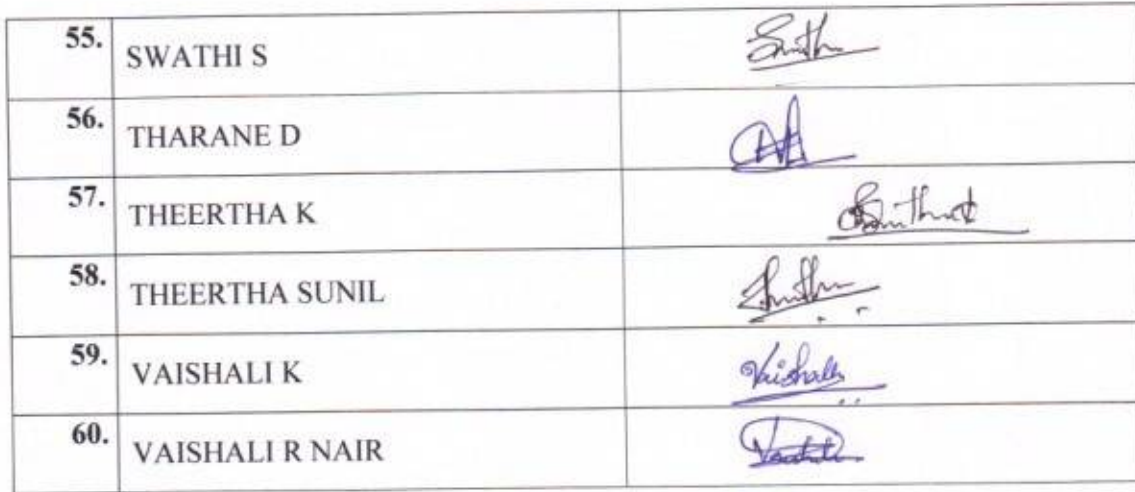 55. SWATHI S
56. THARANE D
57. THEERTHA K
58. THEERTHA SUNIL
59. VAISHALI K Vaishali
60. VAISHALI R NAIR